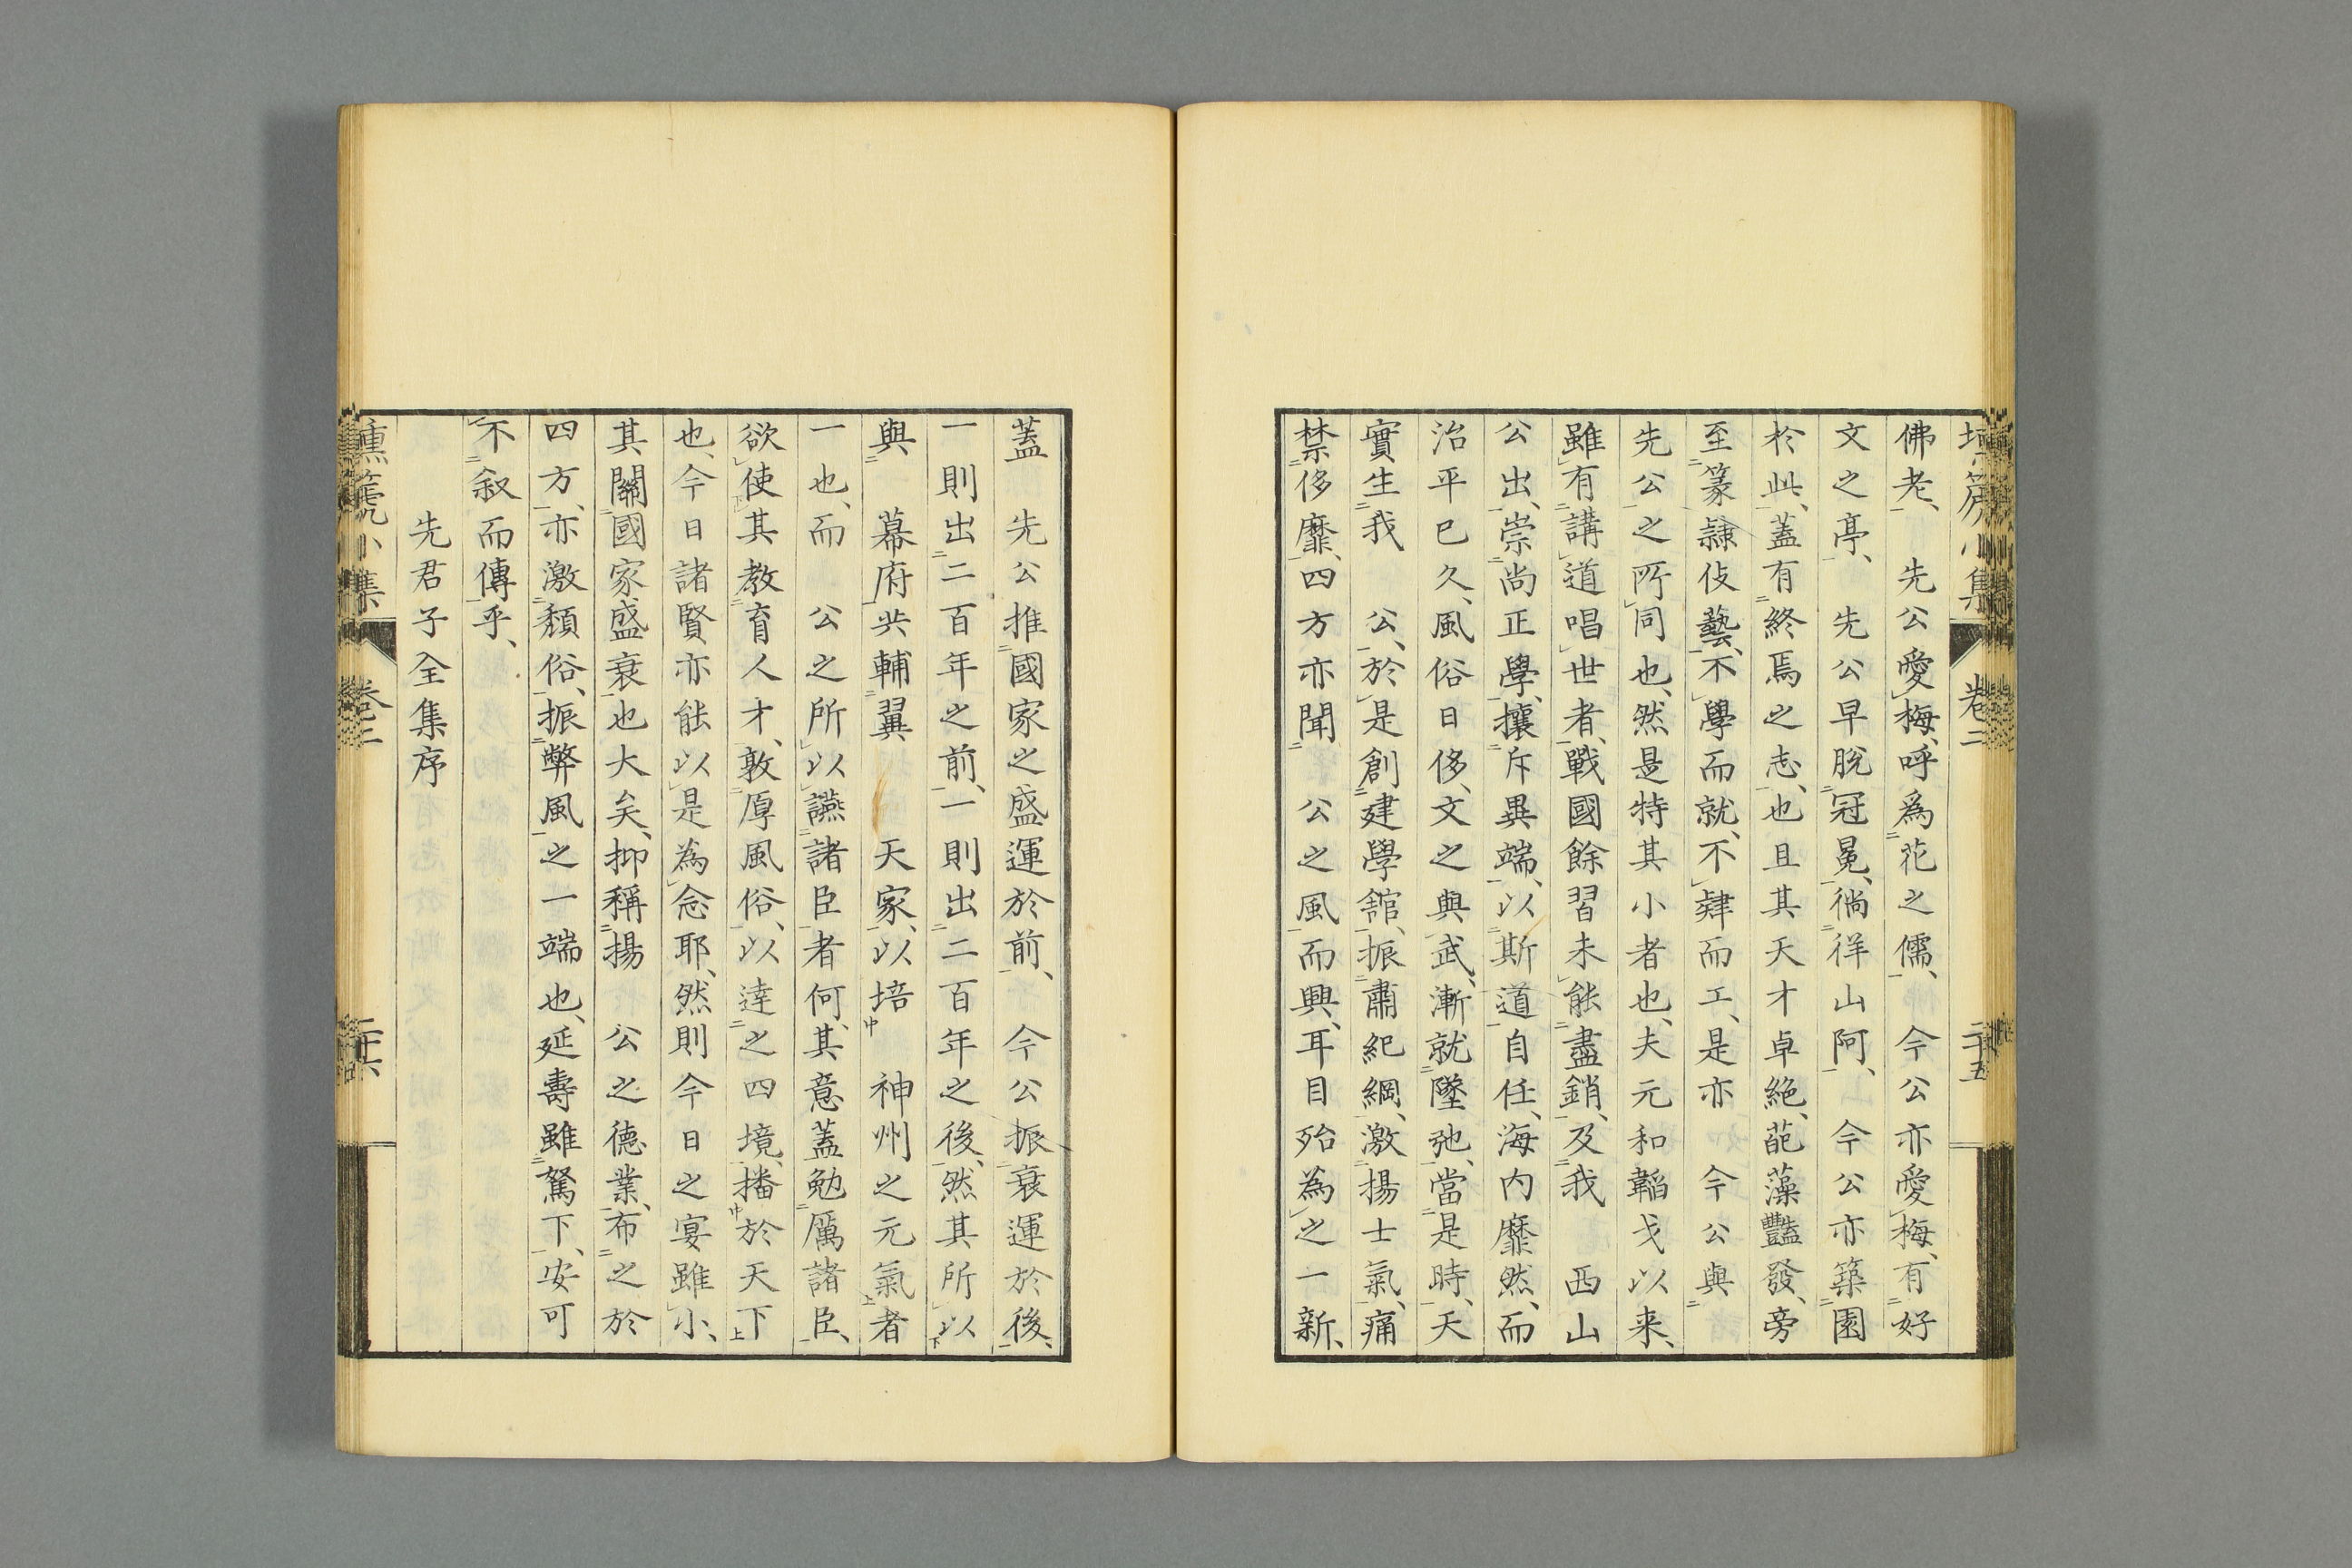 佛老、　先公愛梅、呼爲花之儒、　今公亦愛梅、有好
文之亭、　先公早脫冠冕、徜徉山阿、　今公亦築園
於此、蓋有終焉之志、也且其天才卓絶、葩藻豔發、旁
至篆隷伎藝、不學而就、不肄而工、是亦　今公與
先公之所同也、然是特其小者也、夫元和韜戈以来、
雖有講道唱世者、戰國餘習未能盡銷、及我　西山
公出、崇尚正學、攘斥異端、以斯道自任、海内靡然、而
治平已久、風俗日侈、文之與武、漸就墜弛、當是時、天
實生我　公、於是創建學舘、振肅紀綱、激揚士氣、痛
禁侈靡、四方亦聞　公之風而興、耳目殆為之一新、
蓋　先公推國家之盛運於前、　今公振衰運於後、
一則出二百年之前、一則出二百年之後、然其所以
與　幕府共輔翼　天家、以培　神州之元氣者
一也、而　公之所以讌諸臣者何、其意蓋勉厲諸臣、
欲使其教育人才、敦厚風俗、以達之四境、播於天下
也、今日諸賢亦能以是為念耶、然則今日之宴雖小、
其關國家盛衰也大矣、抑稱揚　公之德業、布之於
四方、亦激頽俗、振弊風之一端也、延壽雖駑下、安可
不叙而傳乎、
先君子全集序
壎箎小集　卷二　二十五
壎箎小集　卷二　二十六